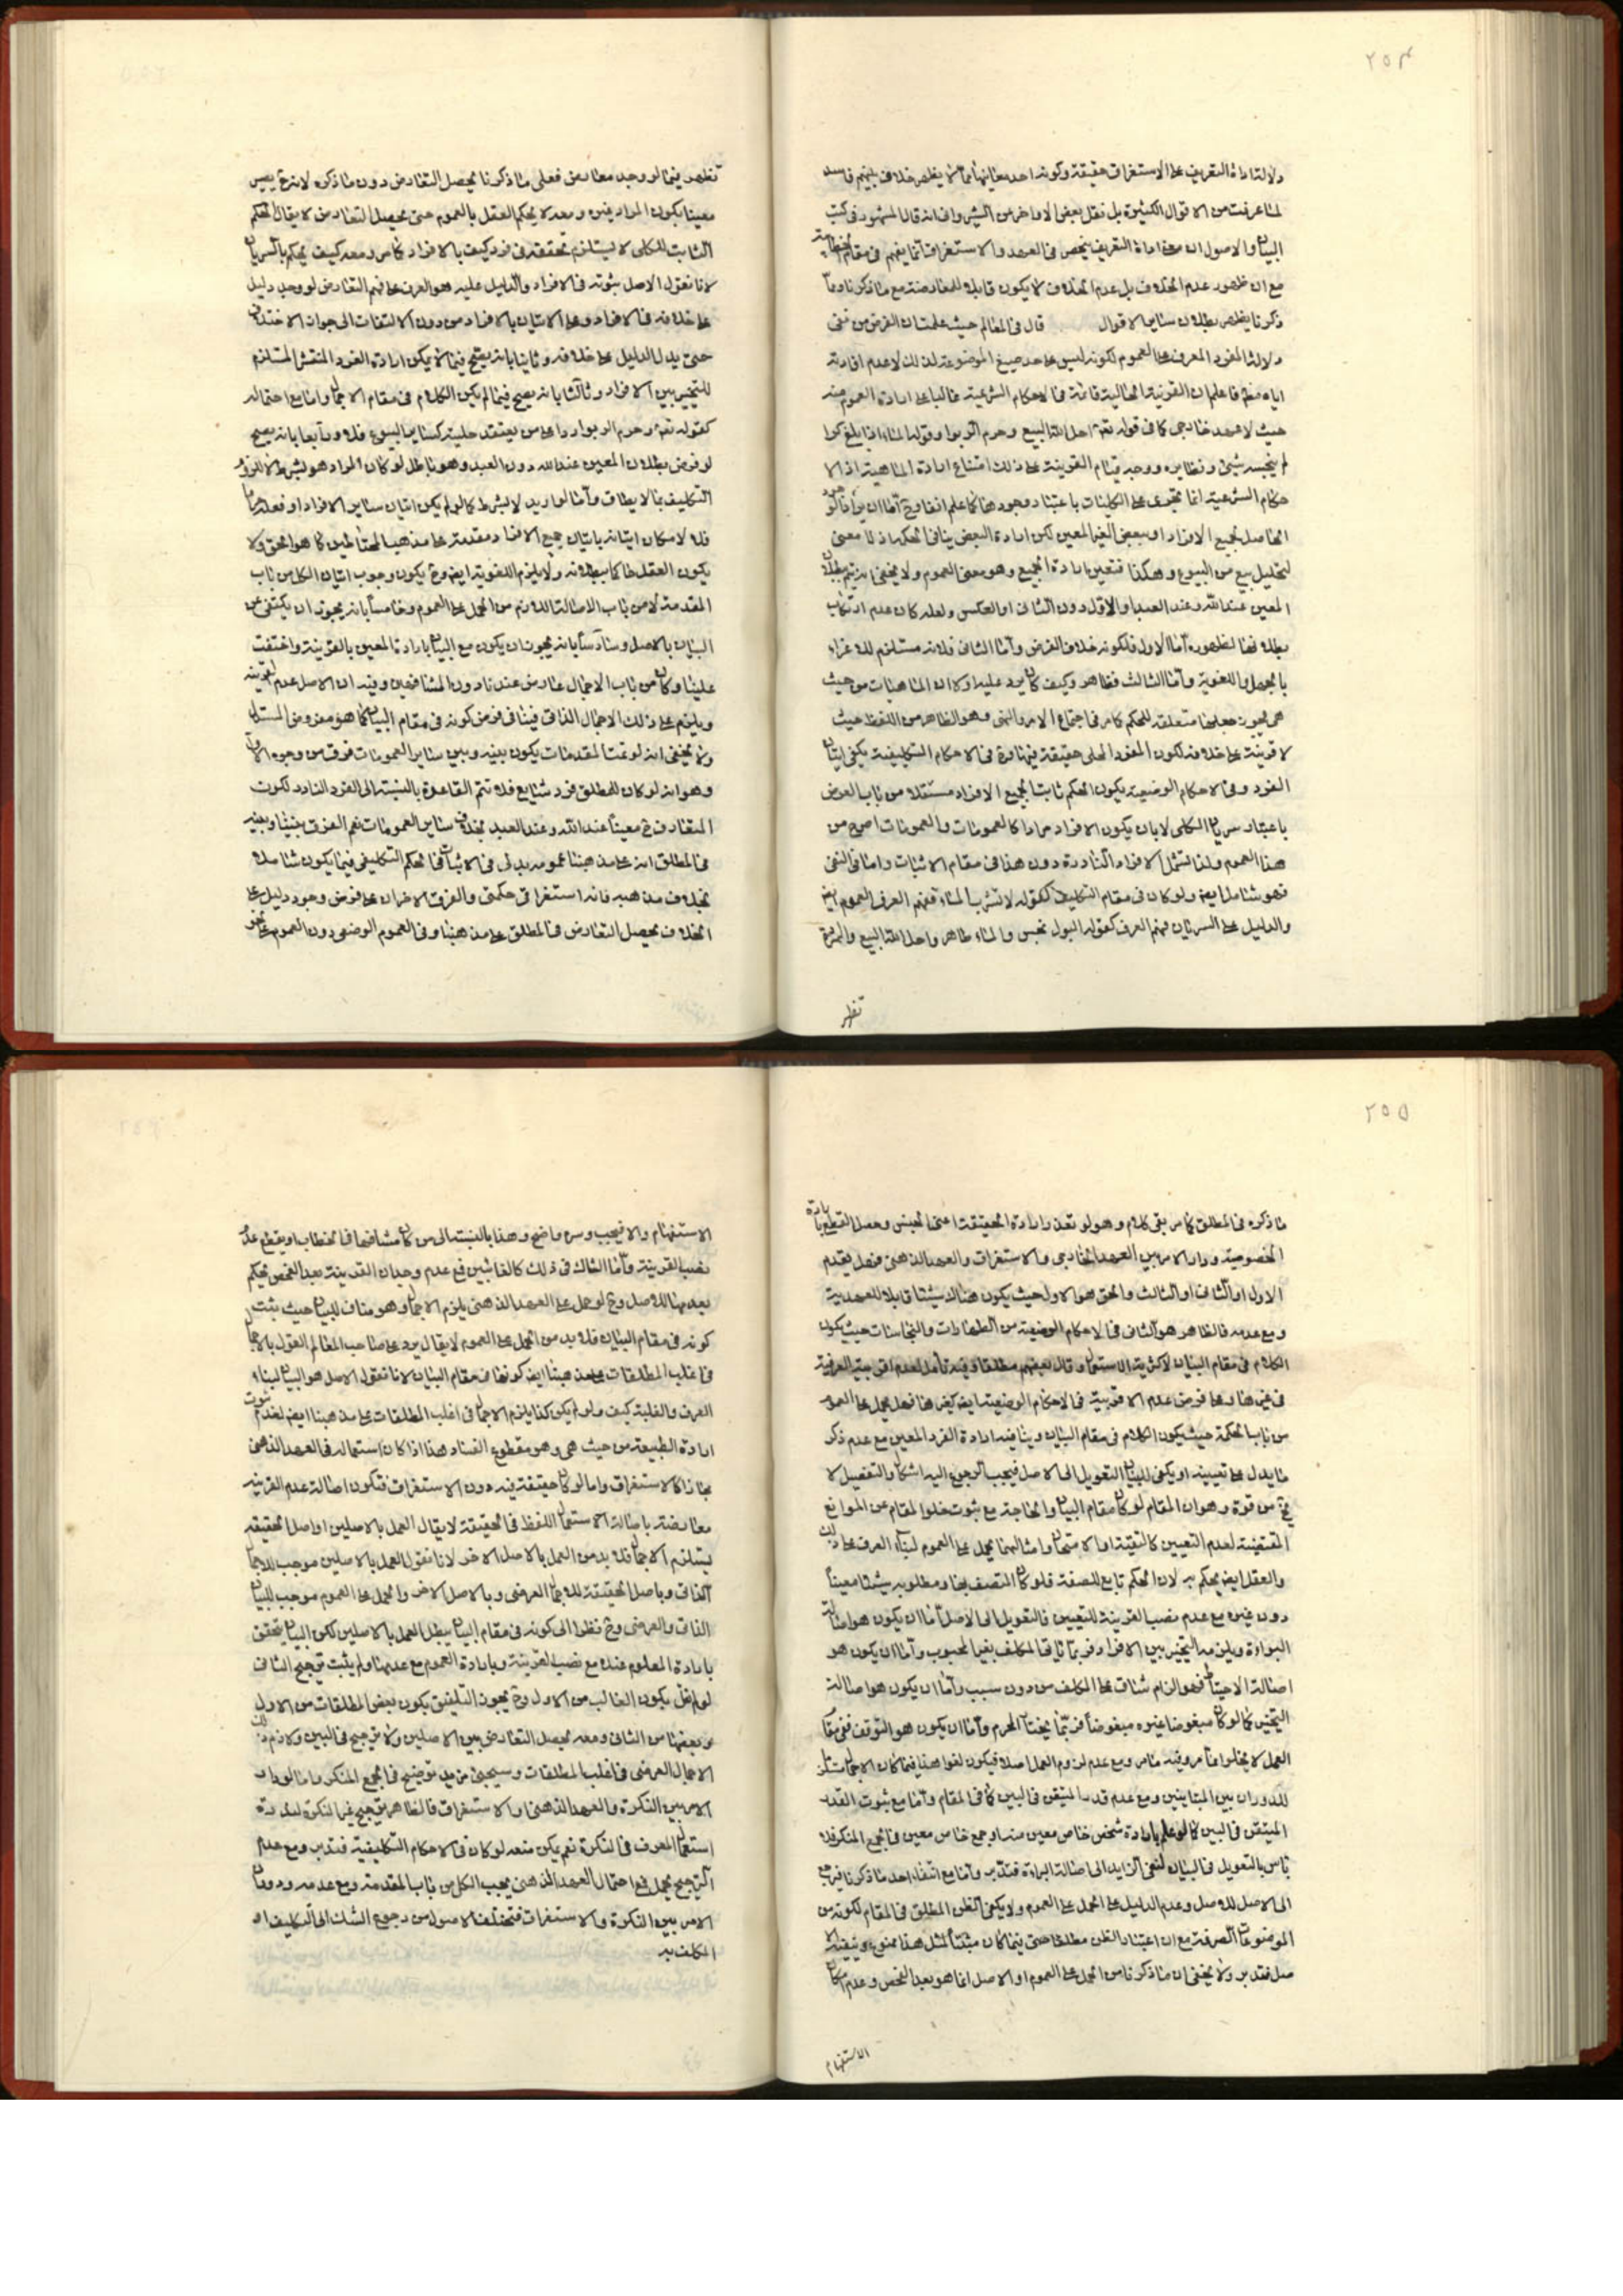 ٢٥٤
دلالة اداة التعريف على الاستغراق حقيقة وكونه احد معانيها مما لا يظهر خلاف بينهم فاسد
لما عرفت من الاقوال الكثيرة بل نقل بعض الاواخر عن الشيرواني انه قال المشهور في كتب
البيان والاصول ان معنى اداة التعريف ينحصر في العهد والاستغراق انما يفهم في مقام
مع ان ظهور عدم الخلاف بل عدم الخلاف لا يكون قابلا للمعارضة مع ما ذكرنا وما
ذكرنا يظهر بطلان ساير الاقوال قال في المعالم حيث علمت ان الغرض من نفي
دلالة المفرد المعرف على العموم كونه ليس على حد صيغ الموضوعة لذلك لا عدم افادته
اياه مطلقا فاعلم ان القرينة الحالية قائمة في الاحكام الشرعية غالبا على ارادة العموم منه
حيث لا عهد خارجي كما في قوله تعالى احل الله البيع وحرم الربوا وقوله الماء اذا بلغ كرا
لم ينجسه شيئ ونظايره ووجه قيام القرينة على ذلك امتناع ارادة الماهية اذ الا
حكام الشرعية انما تجري على الكليات باعتبار وجودها كما علم انفا وح اما ان يراد
الحاصل بجميع الافراد او ببعض الغير المعين لكن ارادة البعض ينافي الحكمة اذ لا معنى
لتحليل بيع من البيوع وهكذا فتعين ارادة الجميع وهو معنى العموم ولا يخفى انه يتم ببطلان
المعين عند الله وعند العبد او الاول دون الثاني او العكس ولعله كان عدم ارتكاب
بطلانها لظهوره اما الاول فلكونه خلاف الفرض واما الثاني فلانه مستلزم للاغراء
بالجهل واللغوية واما الثالث فظاهر وكيف كان يرد عليه اولا ان الماهيات من حيث
هي يجوز جعلها متعلقة للحكم كما مر في اجتماع الامر والنهي وهو الظاهر من اللفظ حيث
لا قرينة على خلافه لكون المفرد المحلى حقيقة فيها تارة في الاحكام التكليفية يكفي اتيان
الفرد وفي الاحكام الوضعية يكون الحكم ثابتا لجميع الافراد مستقلا من باب العرض
باعتبار سريان الكلي لا بان يكون الافراد مرادا كالعمومات والعمومات اصرح من
هذا العموم ولذا تشمل الافراد النادرة دون هذا في مقام الاثبات واما في النفي
فهو شامل ايضا ولو كان في مقام التكليف كقوله لا تشرب الماء فيفهم العرف العموم ايض
والدليل على السريان فهم العرف كقوله البول نجس والماء طاهر واحل الله البيع والثمرة
تظهر
تظهر فيما لو وجد معارض فعلى ما ذكرنا يحصل التعارض دون ما ذكره لانه ح يصير
معينا بكون المراد غيره ومعه لا يحكم العقل بالعموم حتى يحصل التعارض لا يقال الحكم
الثابت للكلي لا يستلزم تحققه في فرد كيف بالافراد كما مر ومعه كيف يحكم بالسريان
لانا نقول الاصل ثبوته في الافراد والدليل عليه هو العرف على فهم التعارض لو وجد دليل
على خلافه في الافراد وعلى الاتيان بالافراد من دون الالتفات الى جواز الاختلاف
حتى يدل الدليل على خلافه وثانيا بانه يصح فيما لا يمكن ارادة الفرد المنتشر المستلزم
للتخيير بين الافراد وثالثا بانه يصح فيما لم يكن الكلام في مقام الاجمال واما مع احتماله
كقوله تعالى وحرم الربوا ردا على من يعتقد حلية كساير البيوع فلا ورابعا بانه يصح
لو فرض بطلان المعين عند الله دون العبد وهو باطل لو كان المراد هو بشرط لا للزوم
التكليف بما لا يطاق واما لو اريد لا بشرط كما لو لم يكن اتيان ساير الافراد او فعله
فلا لامكان اتيانه باتيان جميع الافراد مقدمة على مذهب المحتاطين كما هو الحق ولا
يكون العقل حاكما ببطلانه ولا يلزم اللغوية ايض وح يكون وجوب اتيان الكل من باب
المقدمة لا من باب الاصالة اللازم من الحمل على العموم وخامسا بانه يجوز ان يكتفى عن
البيان بالاصل وسادسا بانه يجوز ان يكون مع البيان بارادة المعين بالقرينة واختفت
علينا وكان من باب الاجمال عارض عندنا دون المشافهين وفيه ان الاصل عدم القرينة
ويلزم على ذلك الاجمال الذاتي فينافى فرض كونه في مقام البيان كما هو مفروض المستدل
ولا يخفى انه لو تمت المقدمات يكون بينه وبين ساير العمومات فرق من وجوه الاول
وهو انه لو كان للمطلق فرد شايع فلا تتم القاعدة بالنسبة الى الفرد النادر لكون
المتعارف ح معينا عند الله وعند العبد بخلاف ساير العمومات نعم الفرق بيننا وبينه
في المطلق انه على مذهبنا عمومه بدلي في الاثبات في الحكم التكليفي فيما يكون شاملا
بخلاف مذهبه فانه استغراقي حكمتي والفرق الاخر ان على فرض وجود دليل على
الخلاف يحصل التعارض في المطلق على مذهبنا وفي العموم الوضعي دون العموم على نحو
٢٥٥
ما ذكره في المطلق كما مر بقي كلام وهو لو تعذر ارادة الحقيقة اعني الجنس وحصل القطع بارادة
الخصوصية ودار الامر بين العهد الخارجي والاستغراق والعهد الذهني فهل يقدم
الاول او الثاني او الثالث والحق هو الاول حيث يكون هناك شيئا قابلا للعهدية
ومع عدمه فالظاهر هو الثاني في الاحكام الوضعية من الطهارات والنجاسات حيث يكون
الكلام في مقام البيان لاكثرية الاستعمال وقال بعضهم مطلقا وفيه تأمل لعدم اقربية العرفية
في غيرها وعلى فرض عدم الاقربية في الاحكام الوضعية ايض كغيرها فهل يحمل على العموم
من باب الحكمة حيث يكون الكلام في مقام البيان وينافيه ارادة الفرد المعين مع عدم ذكر
ما يدل على تعيينه او يكفي للبيان التعويل الى الاصل فيجب الرجوع اليه اشكال والتفصيل لا
يخ من قوة وهو ان المقام لو كان مقام البيان والحاجة مع ثبوت خلو المقام عن الموانع
المقتضية لعدم التعيين كالتقية او الامتحان وامثالهما يحمل على العموم لبناء العرف على ذلك
والعقل ايض يحكم به لان الحكم تابع للصفة فلو كان المتصف بها ومطلوبه شيئا معينا
دون غيره مع عدم نصب القرينة للتعيين فالتعويل الى الاصل اما ان يكون هو اصالة
البراءة ويلزمه التخيير بين الافراد فربما ياتي المكلف بغير المحبوب واما ان يكون هو
اصالة الاحتياط فهو الزام شاق على المكلف من دون سبب واما ان يكون هو اصالة
التخيير كما لو كان مبغوضا غيره مبغوضا فربما يختار المحرم واما ان يكون هو التوقف ففي مقام
العمل لا يخلوا عما مر وفيه ما مر ومع عدم لزوم العمل اصلا فيكون لغوا هذا فيما كان الاجمال مستلزم
للدوران بين المتباينين ومع عدم قدر المتيقن في البين كما في المقام واما مع ثبوت القدر
المتيقن في البين كما لو علم بارادة شخص خاص معين منه او جمع خاص معين في الجمع المنكر فلا
باس بالتعويل في البيان لنفي الزايد الى اصالة البراءة فتدبر واما مع انتفاء احد ما ذكرنا فيرجع
الى الاصل للاصل وعدم الدليل على الحمل على العموم ولا يكفي الظن المطلق في المقام لكونه من
الموضوعات الصرفة مع ان اعتبار الظن مطلقا حتى فيما كان مثبتا لمثل هذا ممنوع
صل فتدبر ولا يخفى ان ما ذكرنا من الحمل على العموم او الاصل انما هو بعد الفحص وعدم امكان
الاستفهام
الاستفهام والا فيجب وسره واضح وهذا بالنسبة الى من كان مشافها في الخطاب او يقطع عدم
نصب القرينة واما الشاك في ذلك كالغائبين فمع عدم وجدان القرينة بعد الفحص يحكم
بعدمها للاصل وح لو حمل على العهد الذهني يلزم الاجمال وهو مناف للبيان حيث يثبت
كونه في مقام البيان فلا بد من الحمل على العموم لا يقال يرد على صاحب المعالم القول بالاجمال
في اغلب المطلقات على مذهبنا ايض كونها في مقام البيان لانا نقول الاصل هو البيان لبناء
العرف والغلبة كيف ولو لم يكن كذا يلزم الاجمال في اغلب المطلقات على مذهبنا ايض لعدم ثبوت
ارادة الطبيعة من حيث هي وهو مقطوع الفساد هذا اذا كان استعماله في العهد الذهني
مجازا كالاستغراق واما لو كان حقيقة فيه دون الاستغراق فتكون اصالة عدم القرينة
معارضة باصالة الاستعمال اللفظ في الحقيقة لا يقال العمل بالاصلين او اصل الحقيقة
يستلزم الاجمال فلا بد من العمل بالاصل الاخر لانا نقول العمل بالاصلين موجب للاجمال
الذاتي وباصل الحقيقة للاجمال العرضي وبالاصل الاخر والحمل على العموم موجب للبيان
الذاتي والعرضي وح نظرا الى كونه في مقام البيان يبطل العمل بالاصلين لكن البيان يتحقق
بارادة المعلوم عنده مع نصب القرينة وبارادة العموم مع عدمها ولم يثبت ترجيح الثاني
لو لم نقل بكون الغالب من الاول وح يجوز التلفيق بكون بعض المطلقات من الاول
وبعضها من الثاني ومعه يحصل التعارض بين الاصلين ولا ترجيح في البين ولازم ذلك
الاجمال العرضي في اغلب المطلقات وسيجيئ مزيد توضيح في الجمع المنكر واما لو دار
الامر بين النكرة والعهد الذهني او الاستغراق فالظاهر ترجيح غير النكرة لندرة
استعمال المعرف في النكرة نعم يمكن منعه لو كان في الاحكام التكليفية فتدبر ومع عدم
الترجيح يحمل مع احتمال العهد الذهني يجب الكل من باب المقدمة ومع عدمه ودوران
الامر بين النكرة والاستغراق فتختلف الاصول من رجوع الشك الى التكليف او
المكلف به